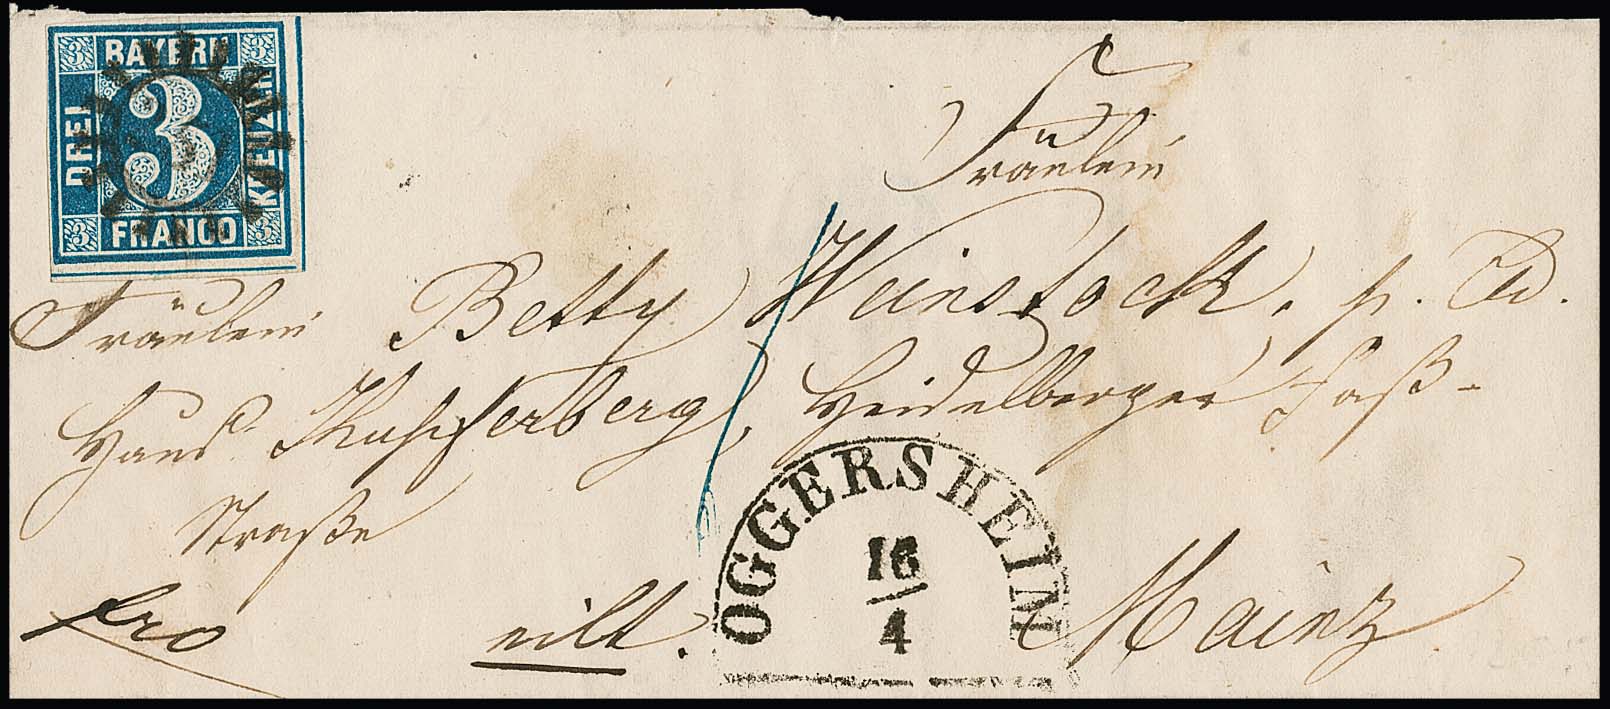 BAYERN
DREI
3
KREUZER
FRANCO
3 3 3 3
Fräulein
Fräulein Betty Weinstock, p. Ad.
Haus Kupferberg, Heidelberger Faß-
Straße
fro eilt. Mainz
OGGERSHEIM
16
4